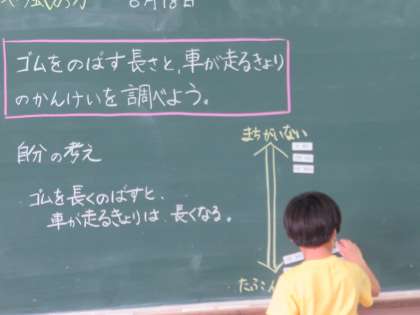 6月18日
ゴムをのばす長さと、車が走るきょり
のかんけいを調べよう。
自分の考え
ゴムを長くのばすと、
車が走るきょりは 長くなる。
まちがいない
たぶん